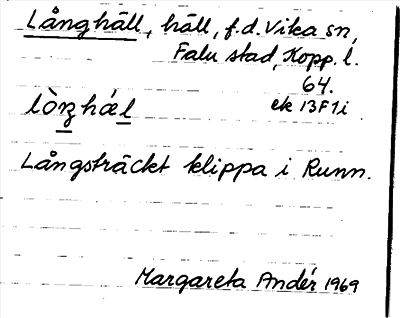 Långhäll, häll, f.d. Vika sn,
Falu stad, Kopp. l.
64.
lòŋhǽl ek 13F1i
Långsträckt klippa i Runn.
Margareta Andér 1969